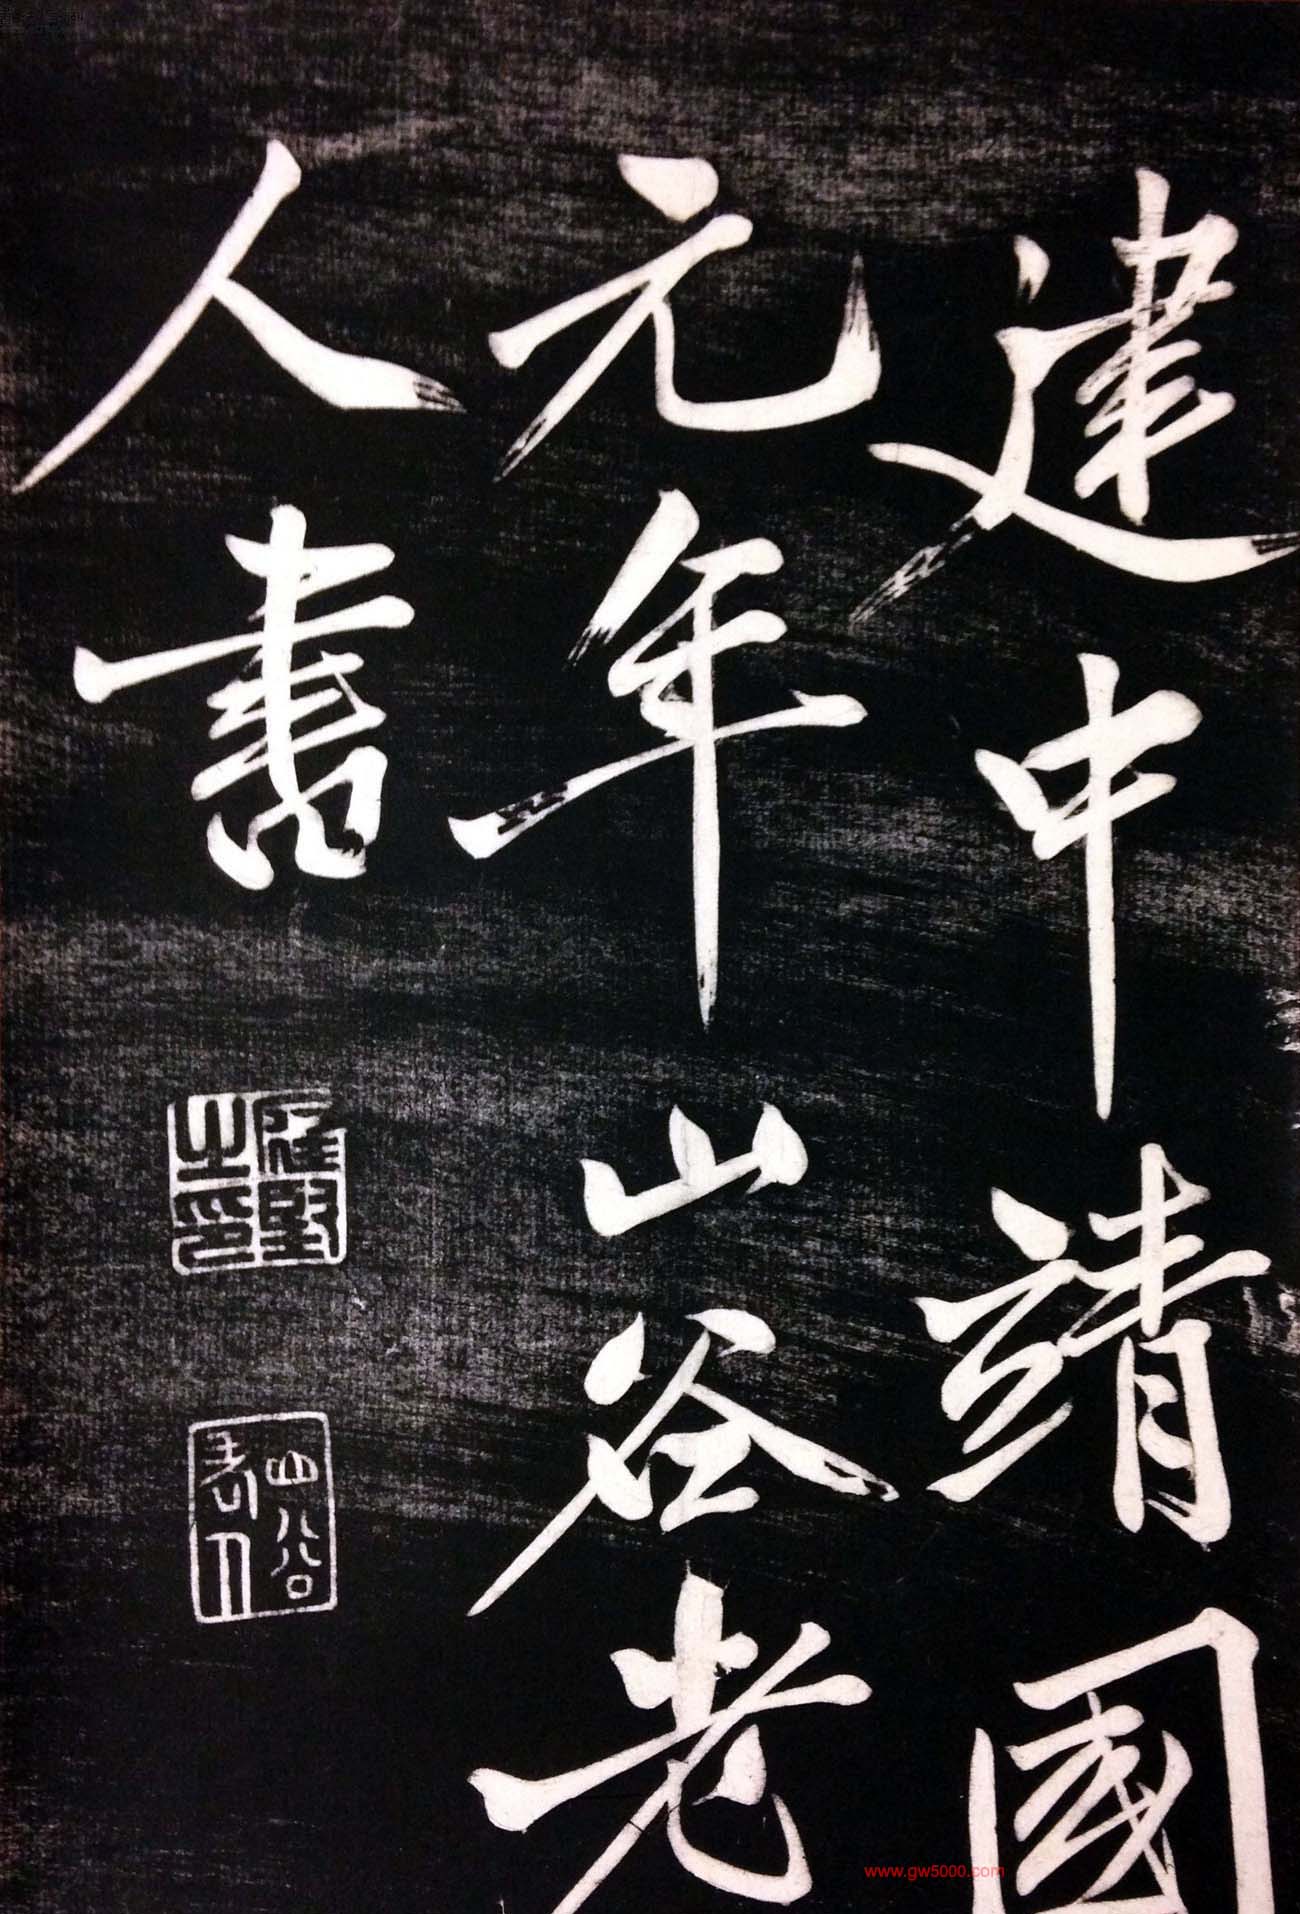 建中靖國
元年山谷老
人書
庭堅之印
山谷老人
www.gw5000.com